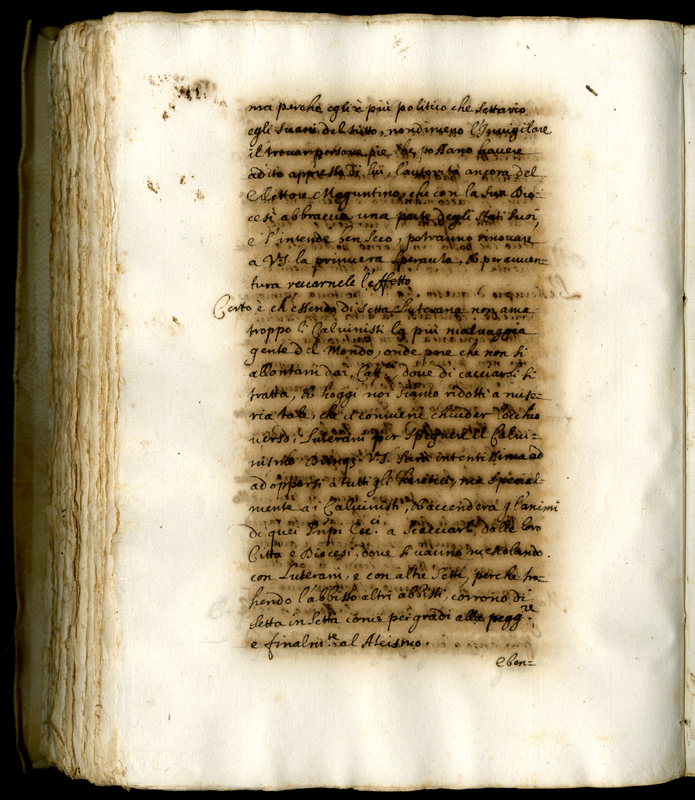 ma perche egli è più politico che settario
egli svarij del tutto, nondimeno l'Invigilare
il trovar persone pie che possano havere
adito appresso di lui, l'autorità ancora del
Elettore Moguntino, che con la sua Dio=
cesi abbraccia una parte degli stati suoi,
e l'intende ben seco, potranno rinovare
a V.S. la primiera speranza, & peravven=
tura recarnele l'effetto
Certo è ch'essendo di setta Luterana non ama
troppo li Calvinisti la più malvaggia
gente del Mondo, onde pare che non si
allontani dai Catt.ci dove di cacciarsi si
tratta, & hoggi noi siamo ridotti a mise=
ria tale, che ci conviene chiuder l'occhio
verso i Luterani per spegnere il Calvi=
nismo Dunq; V.S. starà intentissima ad
ad opporsi a tutti gli heretici, ma special=
mente ai Calvinisti, & accenderà gl'animi
di quei Pn̄pi Ecc.ci a scacciarli dalle loro
Città e Diocesi, dove si vanno mescolando
con Luterani, e con altre Sette, perche tra=
hendo l'abbisso altri abbissi, corrono di
setta in setta come per gradi alla pegg.re
e finalm.te al Ateismo.
E ben=